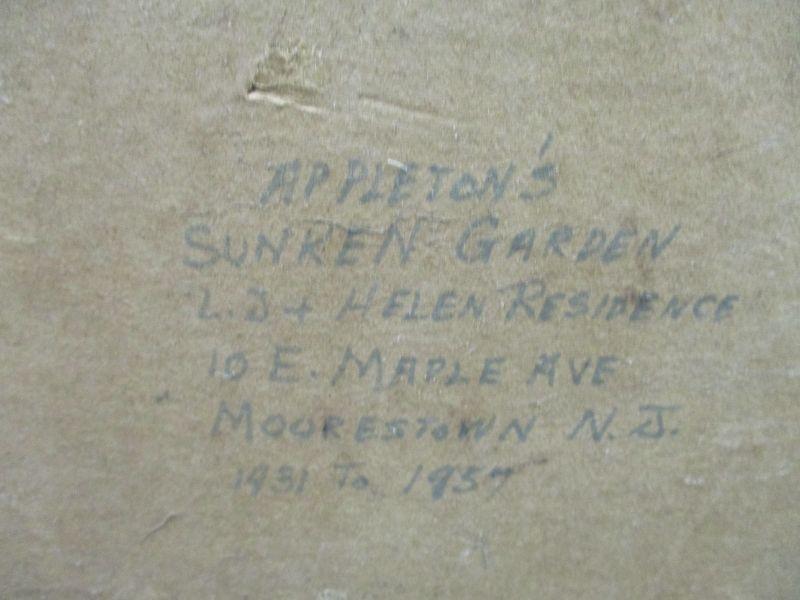 APPLETON'S
SUNKEN GARDEN
L.D + HELEN RESIDENCE
10 E. MAPLE AVE
MOORESTOWN N.J.
1931 To 1957